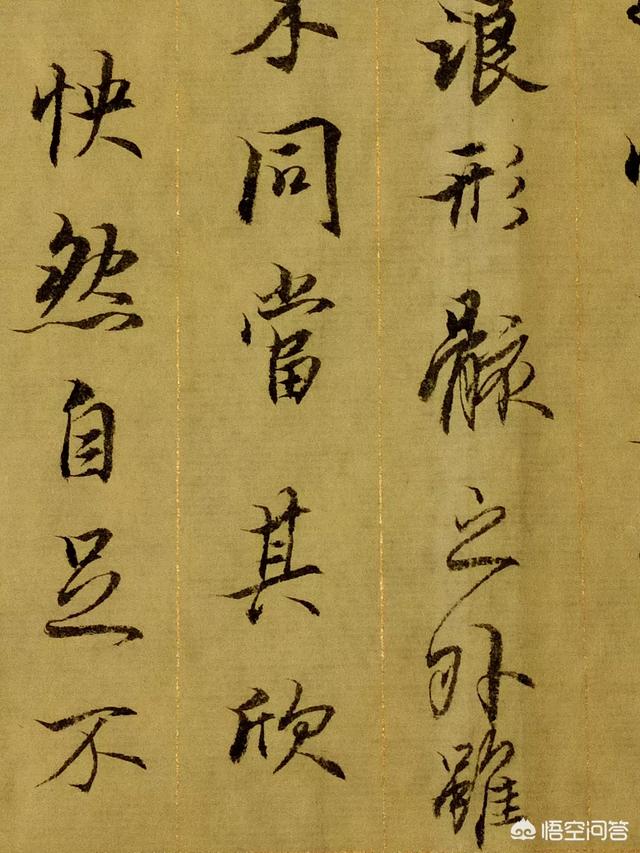 浪形骸之外雖
不同當其欣
怏然自足不
悟空问答